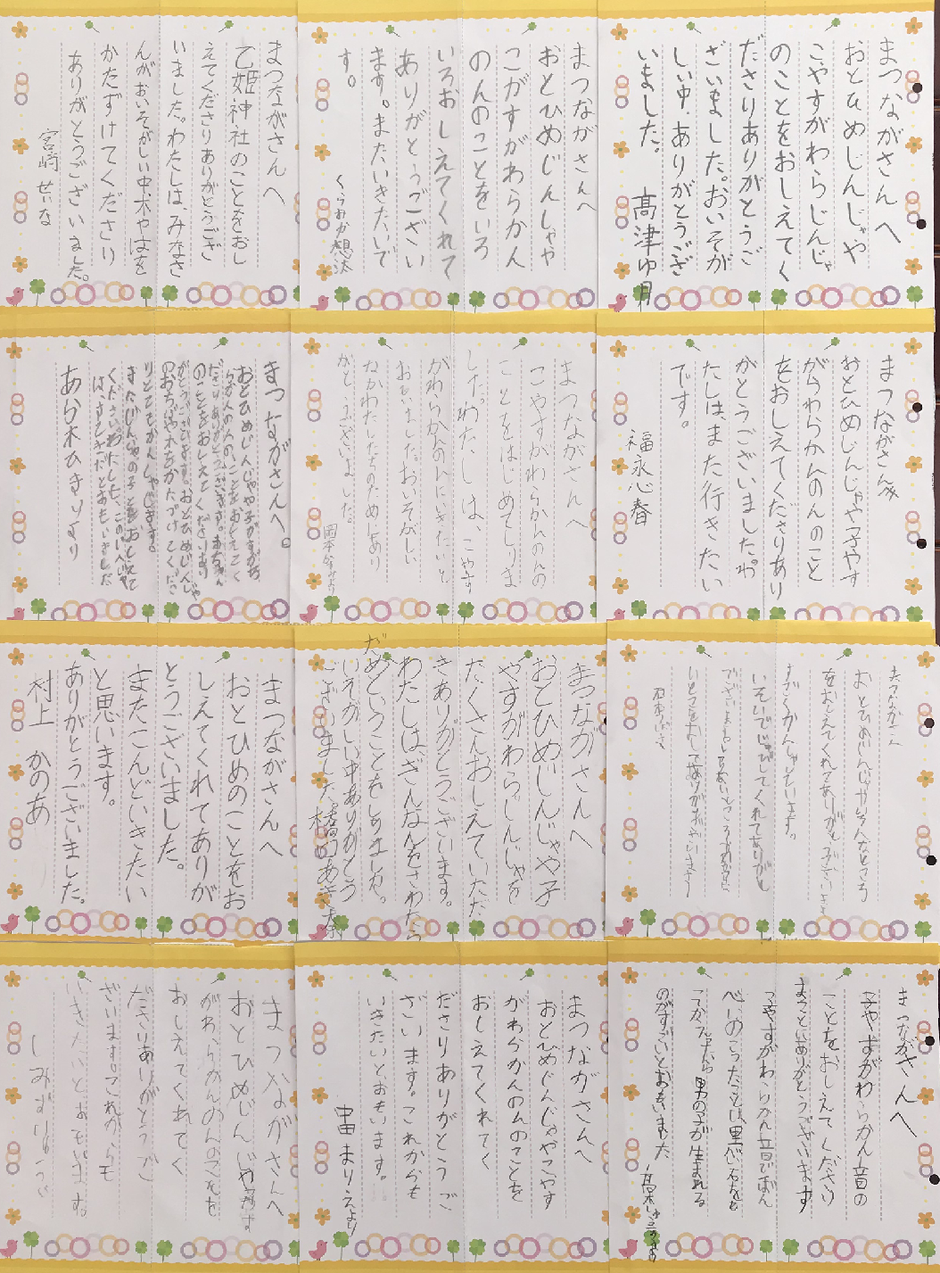 まつながさんへ
おとひめじんじゃや
こやすがわらじんじゃ
のことをおしえてく
ださりありがとうご
ざいました。おいそが
しい中、ありがとうござ
いました。
髙津ゆ月
まつながさんへ
おとひめじんしゃや
こがすがわらかん
のんのことをいろ
いろおしえてくれて
ありがとうござい
ます。またいきたいで
す。
まつながさんへ
乙姫神社のことをおし
えてくださりありがとうござ
いました。わたしは、みなさ
んがおいそがしい中、木やはを
かたずけてくださり
ありがとうございました。
宮崎 せいな
まつながさんへ
おとひめじんじゃや子やす
がわらかんのんのこと
をおしえてくださりあり
がとうございました。わ
たしは、また行きたい
です。
福永心春
まつながさんへ
こやすがわらかんのんの
ことをはじめてしりま
した。わたしは、こやす
がわらかんのんにいきたいと
おもいました。おいそがしい
なかわたしたちのためにあり
がとうございました。
まつながさんへ。
おとひめじんじゃや子がすがわ
らかんのんのことをおしえてく
ださりありがとうございます。
のことをおしえてくださりあり
がとうございます。おとひめじんじゃ
のおちばや木をかたづけてくださ
りとてもかんしゃします。
またじんじゃの子とをおしえて
ください。わたしも、このじんじゃ
は、すてきだとおもいました
あら木ひまりより
まつながさんへ
をおしえてくれてありがとうございます
すごくかんしゃしています。
まつながさんへ
おとひめじんじゃや子
やすがわらじんじゃを
たくさんおしえていただ
きありがとうございます。
わたしはざんなんをさわたら
だめということをしりました。
いそがしい中ありがとう
ございました。
まつながさんへ
おとひめのことをお
しえてくれてありが
とうございました。
またこんどいきたい
と思います。
ありがとうございました。
村上 かのあ
まつながさんへ
子やすがわらかん音の
ことをおしえてくださり
まことにありがとうございます
こやすがわらかん音でばん
べいのこったことは黒い石なを
こうかんしたら男の子が生まれる
のがすごいとおもいました
まつながさんへ
おとひめじんじゃやこやす
がわらかんのんのことを
おしえてくれてく
ださりありがとうご
ざいます。これからも
いきたいとおもいます。
中田まりえより
まつながさんへ
おとひめじんじゃや
がわらかんのんのことを
おしえてくれてく
ださりありがとうご
ざいます。これからも
いきたいとおもいます。